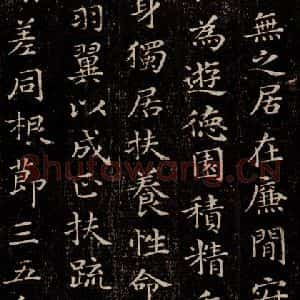 無之居在廉閒
為遊德園積精
身獨居扶養性命
羽翼以成正扶疏
差同根節三五
Shufawang.CN